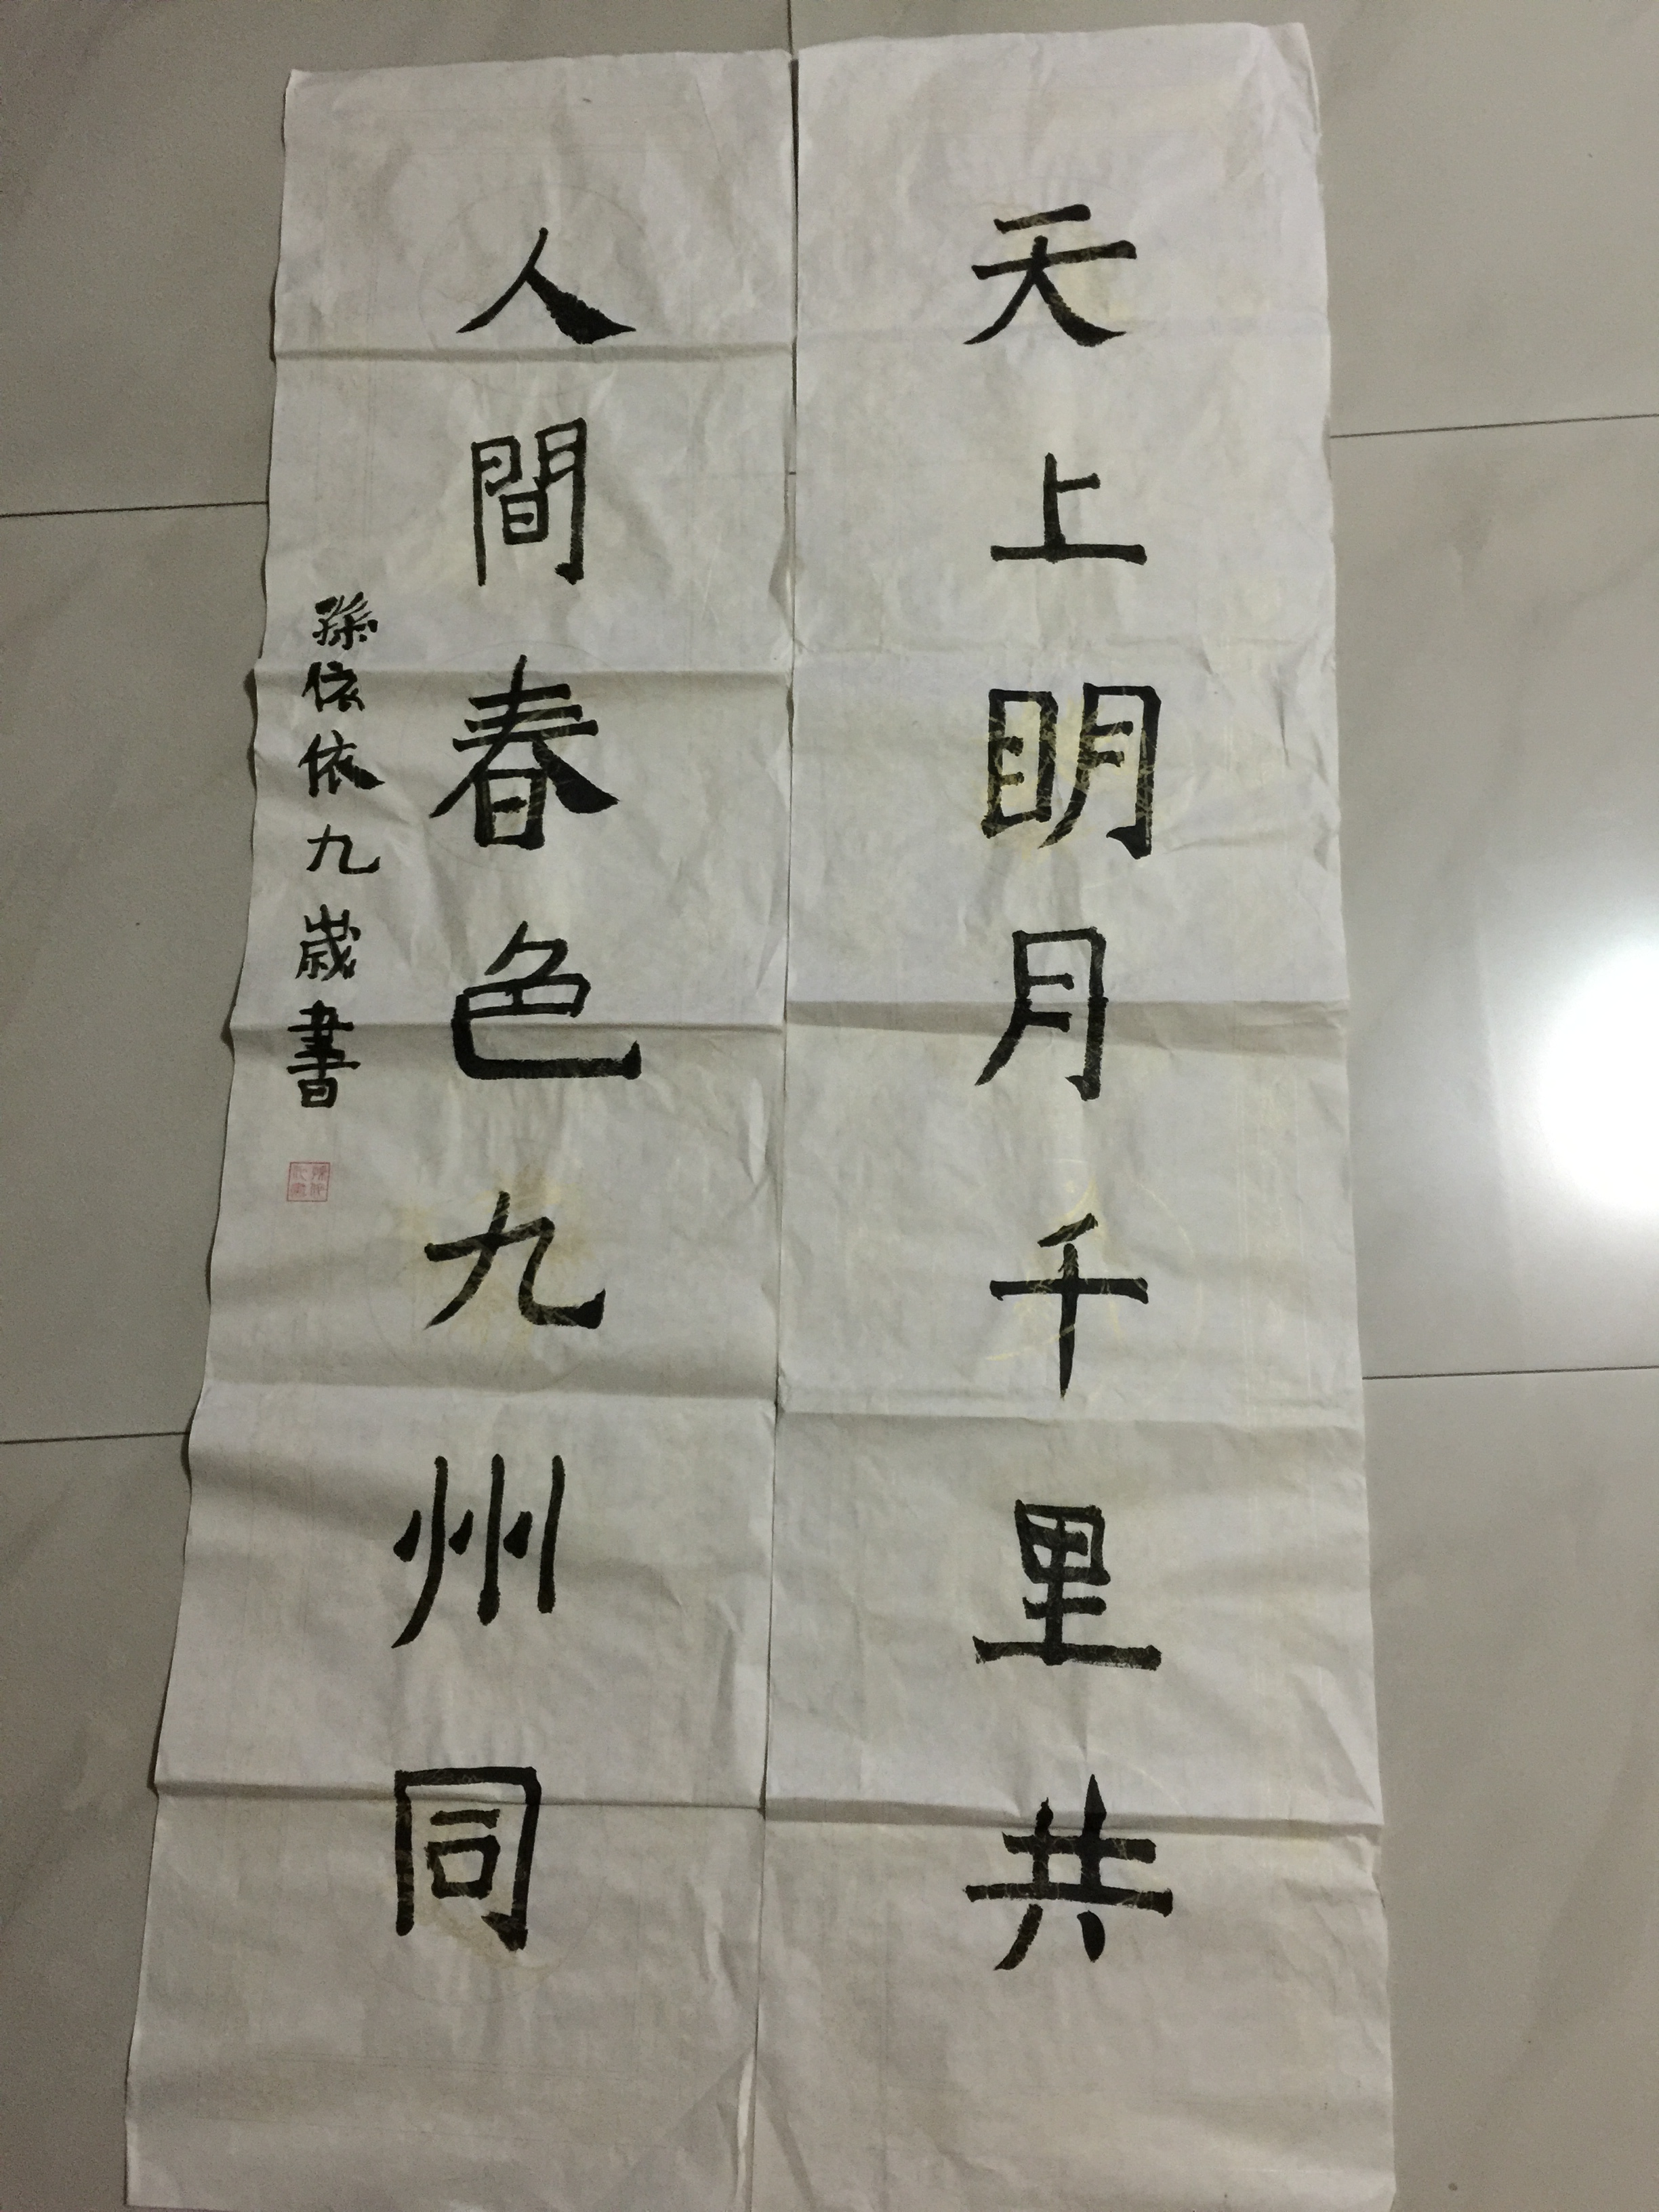 天上明月千里共
人間春色九州同
孫依依九歲書